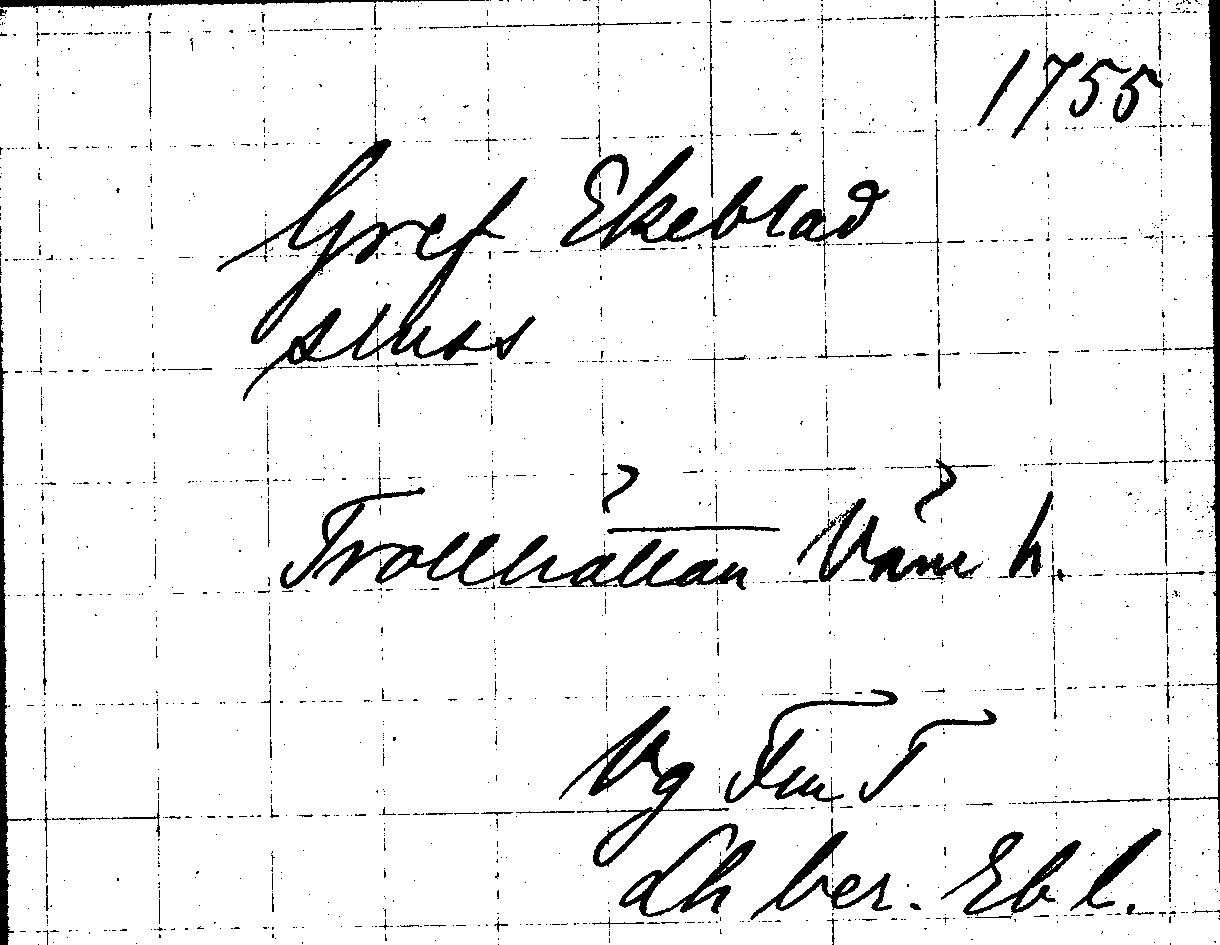 1755
Gref Ekeblad
sluss
Trollhättan Väne h.
Vg Fm T
Lh ber. Eb l.